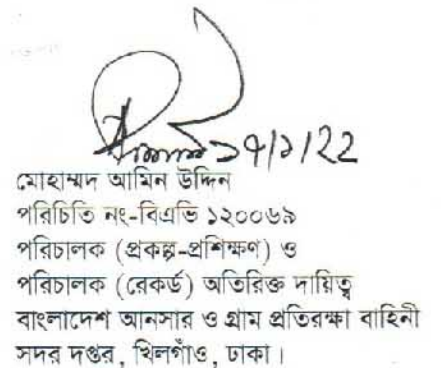 ১৭/১/২২
মোহাম্মদ আমিন উদ্দিন
পরিচিতি নং-বিএভি ১২০০৬৯
পরিচালক (প্রকল্প-প্রশিক্ষণ) ও
পরিচালক (রেকর্ড) অতিরিক্ত দায়িত্ব
বাংলাদেশ আনসার ও গ্রাম প্রতিরক্ষা বাহিনী
সদর দপ্তর, খিলগাঁও, ঢাকা।